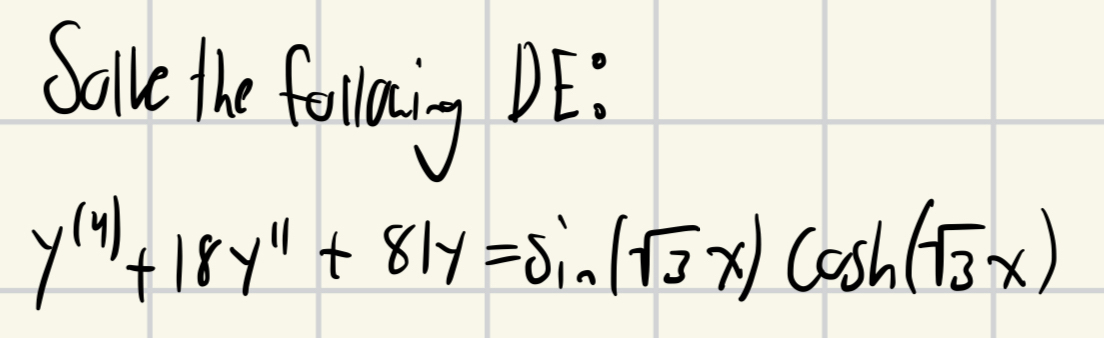 Solve the following DE:
y⁽⁴⁾ + 18y'' + 81y = sin(√3 x) cosh(√3 x)